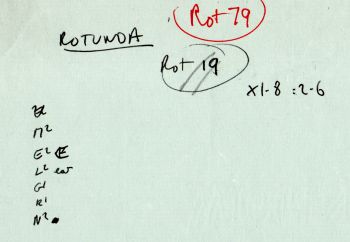 Rot 79
ROTUNDA
Rot 19
X1-8 = 2-6
M²
E² E
L² ear
G¹
R¹
N²